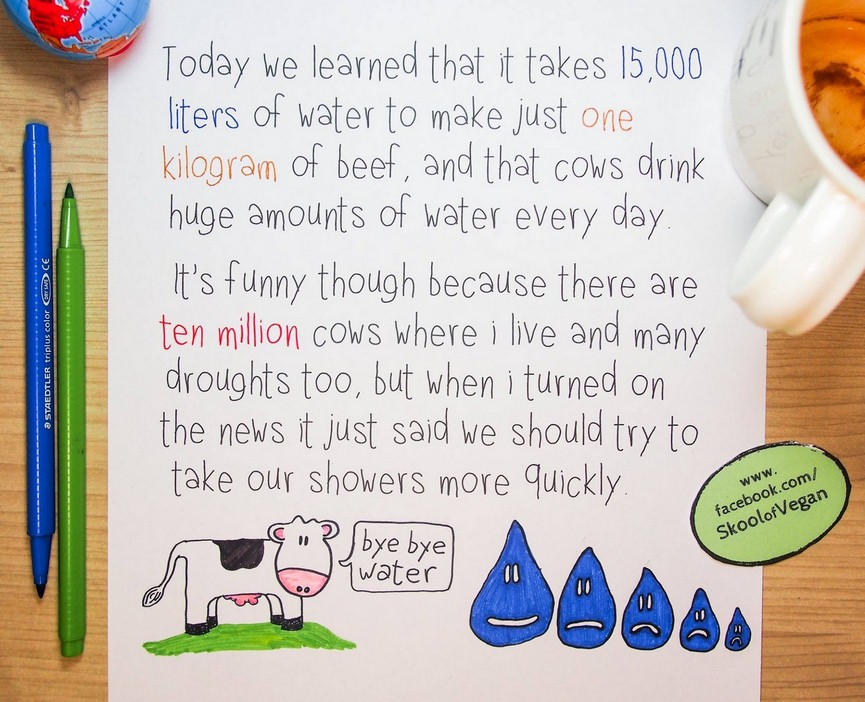 Today we learned that it takes 15,000
liters of water to make just one
kilogram of beef, and that cows drink
huge amounts of water every day.
It's funny though because there are
ten million cows where i live and many
droughts too, but when i turned on
the news it just said we should try to
take our showers more quickly.
bye bye
water
www.
facebook.com/
SkoolofVegan
STAEDTLER triplus color DRY SAFE CE